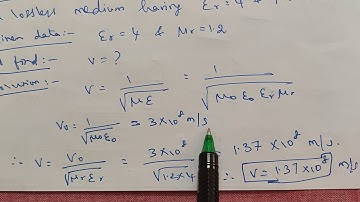 lossless medium having εr = 4 &
data:- εr = 4 & μr = 1.2
find:- v = ?
v = 1/√με = 1/√μ0 ε0 εr μr
v0 = 1/√μ0ε0 = 3×10^8 m/s
∴ v = v0/√μr εr = 3×10^8/√1.2×4 1.37 × 10^8 m/s.
∴ v = 1.37×10^8 m/s